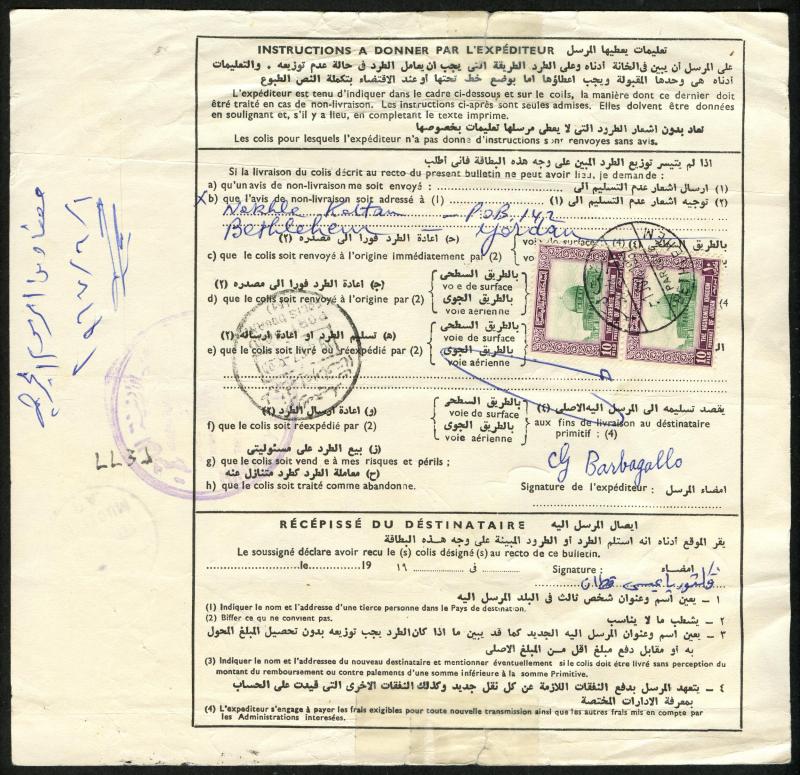 INSTRUCTIONS A DONNER PAR L'EXPÉDITEUR تعليمات يعطيها المرسل
على المرسل أن يبين في الخانة أدناه وعلى الطرد الطريقة التي يجب ان يعامل الطرد في حالة عدم توزيعه . والتعليمات
أدناه هي وحدها المقبولة ويجب اعطاؤها اما بوضع خط تحتها أو عند الاقتضاء بتكملة النص المطبوع
L'expéditeur est tenu d'indiquer dans le cadre ci-dessous et sur le colis, la manière dont ce dernier doit
être traité en cas de non-livraison. Les instructions ci-après sont seules admises. Elles doivent être données
en soulignant et, s'il y a lieu, en completant le texte imprime.
تعاد بدون اشعار الطرود التي لا يعطى مرسلها تعليمات بخصوصها
Les colis pour lesquels l'expéditeur n'a pas donne d'instructions sont renvoyes sans avis.
اذا لم يتيسر توزيع الطرد المبين على وجه هذه البطاقة فاني اطلب
Si la livraison du colis décrit au recto du present bulletin ne peut avoir lieu, je demande :
a) qu'un avis de non-livraison me soit envoyé : (١) ارسال اشعار عدم التسليم الى
b) que l'avis de non-livraison soit adressé à (1) (٢) توجيه اشعار عدم التسليم الى (١)
Nekhle Kattan - P.O.B. 142
Bethlehem - Jordan
(ح) اعادة الطرد فورا الى مصدره (٢) بالطريق
voie de surface (4)
c) que le colis soit renvoyé à l'origine immédiatement par (2)
(ج) اعادة الطرد فورا الى مصدره (٢) بالطريق السطحى
voie de surface
d) que le colis soit renvoyé à l'origine par (2) بالطريق الجوى
voie aérienne
(4
(ه) تسليم الطرد او اعادة ارساله (٢) بالطريق السطحى
voie de surface
e) que le colis soit livré ou réexpédié par (2) بالطريق الجوى
voie aérienne
10 FILS
THE HASHEMITE KINGDOM OF JORDAN
10 FILS
THE HASHEMITE KINGDOM OF JORDAN
(و) اعادة ارسال الطرد (٢) بالطريق السطحى يقصد تسليمه الى المرسل اليه الاصلى (٤)
voie de surface
f) que le colis soit réexpédié par (2) بالطريق الجوى aux fins de livraison au déstinataire
voie aérienne primitif : (4)
(ز) بيع الطرد على مسئوليتى
g) que le colis soit vendu à mes risques et périls ;
(ح) معاملة الطرد كطرد متنازل عنه
h) que le colis soit traité comme abandonne.
Barbagallo
Signature de l'expéditeur : امضاء المرسل
RÉCÉPISSÉ DU DÉSTINATAIRE ايصال المرسل اليه
يقر الموقع أدناه انه استلم الطرد أو الطرود المبينة على وجه هذه البطاقة
Le soussigné déclare avoir recu le (s) colis désigné(s) au recto de ce bulletin.
le 19 ١٩ فى Signature : امضاء
(١ – يعين اسم وعنوان شخص ثالث فى البلد المرسل اليه
(1) Indiquer le nom et l'addresse d'une tierce personne dans le Pays de destination.
(2) Biffer ce qu ne convient pas. ٢ – يشطب ما لا يناسب
٣ – يعين اسم وعنوان المرسل اليه الجديد كما قد يبين ما اذا كان الطرد يجب توزيعه بدون تحصيل المبلغ المحول
به او مقابل دفع مبلغ اقل من المبلغ الاصلى
(3) Indiquer le nom et l'addressee du nouveau destinataire et mentionner éventuellement si le colis doit être livré sans perception du
montant du remboursement ou contre paiements d'une somme inférieure à la somme Primitive.
٤ – يتعهد المرسل بدفع النفقات اللازمة عن كل نقل جديد وكذلك النفقات الاخرى التى قيدت على الحساب
بمعرفة الادارات المختصة
(4) L'expéditeur s'engage à payer les frais exigibles pour toute nouvelle transmission ainsi que les autres frais mis en compte par
les Administrations interesées.